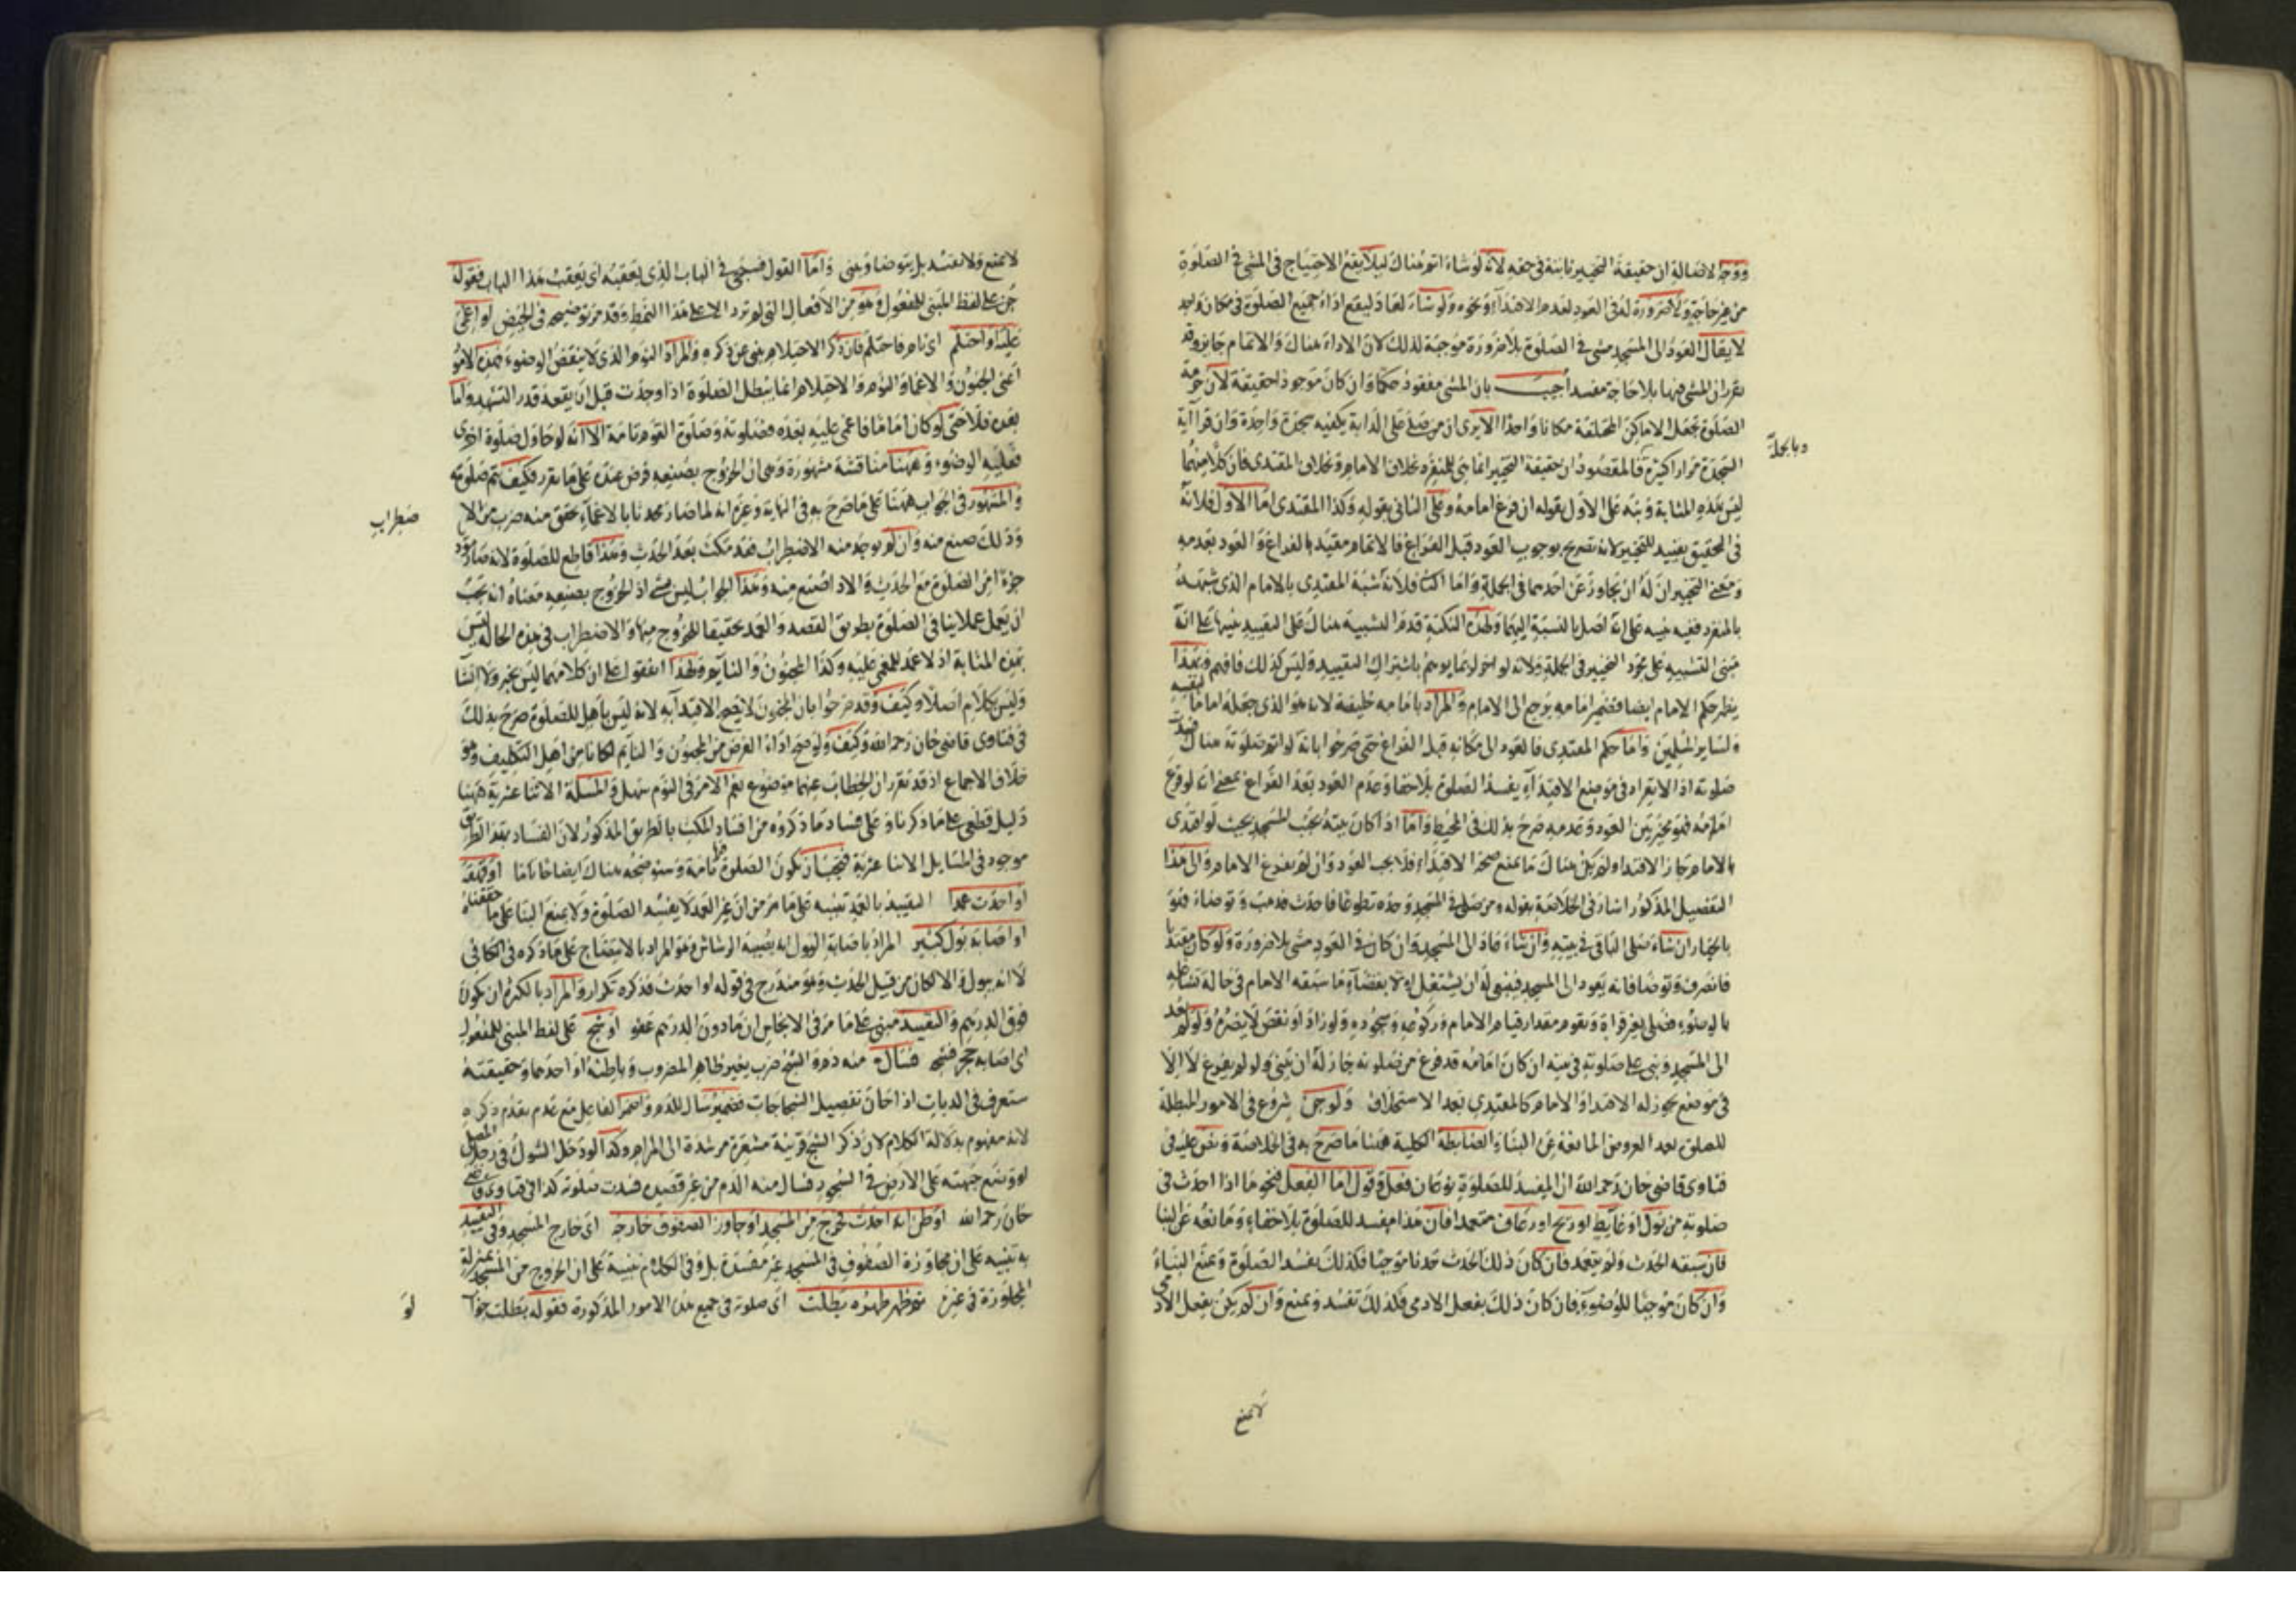 ووجه لا محالة ان حقيقة التخيير ثابتة فى حقه لانه لو شاء اتم هناك ليلا يقع الاحتياج فى المشى فى الصلوة
من غير حاجة ولا ضرورة له فى العود لعدم الاقتداء ونحوه ولو شاء لعاد ليقع اداء جميع الصلوة فى مكان واحد
لا يقال العود الى المسجد مشى فى الصلوة بلا ضرورة موجبة لذلك لان الاداء هناك والاتمام جايز وقد
تقرر ان المشى فيها بلا حاجة مفسد اجيب بان المشى مفقود حكما وان كان موجودا حقيقة لان حرمة
الصلوة تجعل الاماكن المختلفة مكانا واحدا الا يرى ان من صلى على الدابة يكفيه سجدة واحدة وان قرا آية
السجدة مرارا كثيرة فالمقصود ان حقيقة التخيير انما هى للمنفرد بخلاف الامام وبخلاف المقتدى فان كلا منهما
وبالجملة
ليس بهذه المثابة ونبه على الاول بقوله ان فرغ امامه وعلى الثانى بقوله وكذا المقتدى اما الاول فلانه
فى التحقيق تقييد للتخيير لانه تصريح بوجوب العود قبل الفراغ فالاتمام مقيد بالفراغ والعود بعدمه
ومعنى التخيير ان له ان يجاوز عن احدهما فى الجملة واما الثانى فلانه شبه المقتدى بالامام الذى شبهه
بالمنفرد ففيه تنبيه على انه اصل بالنسبة اليهما ولهذه النكتة قدم التشبيه هناك على التقييد تنبيها على انه
مبنى التشبيه على مجرد التخيير فى الجملة ولانه لو اخر لربما يوهم باشتراك التقييد وليس كذلك فافهم وبهذا
يظهر حكم الامام ايضا فضمير امامه يرجع الى الامام والمراد بامامه خليفة لانه هو الذى جعله اماما لنفسه
ولساير المسلمين واما حكم المقتدى فالعود الى مكانه قبل الفراغ حتى صرحوا بانه لو اتم صلوته هناك فسدت
صلوته اذ الانفراد فى موضع الاقتداء يفسد الصلوة بلا خفا وعدم العود بعد الفراغ بمعنى انه لو فرغ
امامه فهو مخير بين العود وعدمه صرح بذلك فى المحيط واما اذا كان بيته بجنب المسجد بحيث لو اقتدى
بالامام جاز الاقتداء ولم يكن هناك ما يمنع صحة الاقتداء فلا يجب العود وان لم يفرغ الامام والى هذا
التفصيل المذكور اشار فى الخلاصة بقوله ومن صلى فى المسجد وحده تطوعا فاحدث فذهب وتوضاء فهو
بالخيار ان شاء صلى الباقى فى بيته وان شاء عاد الى المسجد وان كان فى العود مشى بلا ضرورة ولو كان مقتديا
فانصرف وتوضا فانه يعود الى المسجد فينبغى له ان يشتغل اولا بقضاء ما سبقه الامام فى حالة تشاغله
بالوضوء فصلى بغير قراءة ويقوم مقدار قيام الامام وركوعه وسجوده ولو زاد او نقص لا يضره ولو لم يعد
الى المسجد وبنى على صلوته فى بيته ان كان امامه قد فرغ من صلوته جاز له ان يبنى ولو لم يفرغ لا الا
فى موضع يجوز له الاقتداء والامام كالمقتدى بعد الاستخلاف ولو جن شروع فى الامور المبطلة
للصلوة بعد العروض المانعة عن البناء والضابطة الكلية هنا ما صرح به فى الخلاصة ونص عليه فى
فتاوى قاضى خان رحمه الله ان المفسد للصلوة نوعان فعل وقول اما الفعل فنحو ما اذا احدث فى
صلوته من بول او غايط او ريح او رعاف متعمدا فان هذا مفسد للصلوة بلا خفاء ومانعه عن البنا
فان سبقه الحدث ولم يتعمد فان كان ذلك الحدث حدثا موجبا فكذلك يفسد الصلوة ويمنع البناء
وان كان موجبا للوضوء فان كان ذلك بفعل الادمى فكذلك تفسد ويمنع وان لم يكن بفعل الادمى
لا يمنع
لا يمنع ولا تفسد بل يتوضا ويبنى واما القول فسيجى فى الباب الذى يعقبه اى يعقب هذا الباب فقوله
جن على لفظ المبنى للمفعول وهو من الافعال التى لم ترد الا على هذا النمط وقد مر توضيحه فى الحيض او اغمى
عليه او احتلم اى نام فاحتلم فان ذكر الاحتلام يغنى عن ذكره والمراد النوم الذى لا ينقض الوضوء فهذه الامور
اعنى الجنون والاغماء والنوم والاحتلام انما يبطل الصلوة اذا وجدت قبل ان يقعد قدر التشهد واما
بعده فلا حتى لو كان اماما فاغمى عليه بعده فصلوته وصلوة القوم تامة الا انه لو حاول صلوة اخرى
فعليه الوضوء وههنا مناقشة مشهورة وهى ان الخروج بصنعه فرض عنده على ما تقرر فكيف تتم صلوته
والمشهور فى الجواب ههنا على ما صرح به فى النهاية وغيره انه لما صار محدثا بالاغماء تحقق منه ضرب من الا
ضطراب
وذلك صنع منه وان لم يوجد منه الاضطراب فقد مكث بعد الحدث وهذا قاطع للصلوة لانه صار مؤد
جزءا من الصلوة مع الحدث والاداء صنع منه وهذا الجواب ليس بشئ اذ الخروج بصنعه معناه انه يجب
ان يعمل عملا ينافى الصلوة بطريق القصد والعمد تحقيقا للخروج منها والاضطراب فى هذه الحالة ليس
بهذه المثابة اذ لا عمد للمغمى عليه وكذا المجنون والنايم ولهذا اتفقوا على ان كلامهما ليس بخبر ولا انشا
وليس بكلام اصلا وكيف وقد صرحوا بان المجنون لا يصح الاقتداء به لانه ليس باهل للصلوة صرح بذلك
فى فتاوى قاضى خان رحمه الله وكيف ولو صح اداء الفرض من المجنون والنايم لكانا من اهل التكليف وهو
خلاف الاجماع اذ قد تقرر ان الخطاب عنهما موضوع نعم الامر فى النوم سهل والمسئلة الاثنا عشرية ههنا
دليل قطعى على ما ذكرنا وعلى فساد ما ذكروه من افساد المكث بالطريق المذكور لان الفساد بهذا الطريق
موجود فى المسايل الاثنا عشرية فيجب ان تكون الصلوة تامة وسنوضحه هناك ايضاحا تاما او قهقهة
او احدث عمدا التقييد بالعمد تنبيه على ما مر من ان غير العمد لا يفسد الصلوة ولا يمنع البنا على ما حققناه
او اصابه بول كثير المراد باصابة البول انه يصيبه الرشاش وهو المراد بالانتضاح على ما ذكره فى الكافى
لا انه يبول والا لكان من قبيل الحدث وهو مندرج فى قوله او احدث فذكره تكرار والمراد بالكثرة ان يكون
فوق الدرهم والتقييد مبنى على ما مر فى الانجاس ان ما دون الدرهم عفو او شج على لفظ المبنى للمفعول
اى اصابه حجر فشج فسال منه دم والشج ضرب يغير ظاهر المضروب وباطنه او احدهما وحقيقته
ستعرف فى الديات اذا حان تفصيل الشجاجات فضمير سال للدم واضمر الفاعل مع عدم تقدم ذكره
لانه مفهوم بدلالة الكلام لان ذكر الشج قرينة مشعرة مرشدة الى المرام وكذا لو دخل الشوك فى رجل المصلى
او وضع جبهته على الارض فى السجود فسال منه الدم من غير قصده فسدت صلوته كذا فى فتاوى قاضى
خان رحمه الله او ظن انه احدث فخرج من المسجد او جاوز الصفوف خارجه اى خارج المسجد وفى التقييد
به تنبيه على ان مجاوزة الصفوف فى المسجد غير مفسدة بل وفى الكلام تنبيه على ان الخروج من المسجد بمنزلة
المجاوزة فى غيره ثم ظهر طهره بطلت اى صلوته فى جميع هذه الامور المذكورة فقوله بطلت جوا
لو